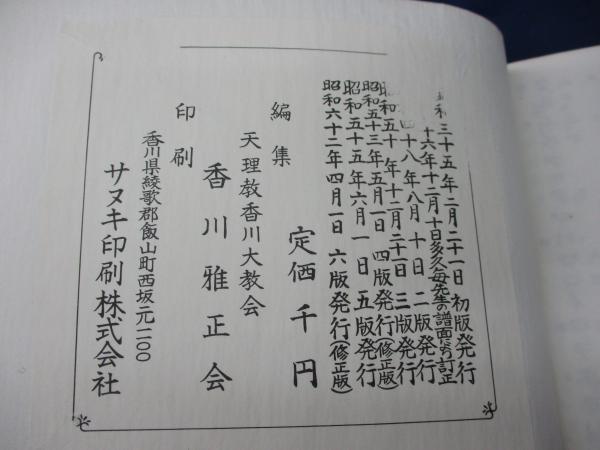 和三十五年二月二十一日 初版発行
十六年十二月十日多久毎先生の譜面により訂正
十八年八月十日 二版発行
昭和五十年十二月二十一日 三版発行
昭和五十三年五月一日 四版発行(修正版)
昭和五十五年六月一日 五版発行
昭和六十二年四月一日 六版発行(修正版)
定価千円
編集
天理教香川大教会
香川雅正会
印刷
香川県綾歌郡飯山町西坂元一二〇〇
サヌキ印刷株式会社